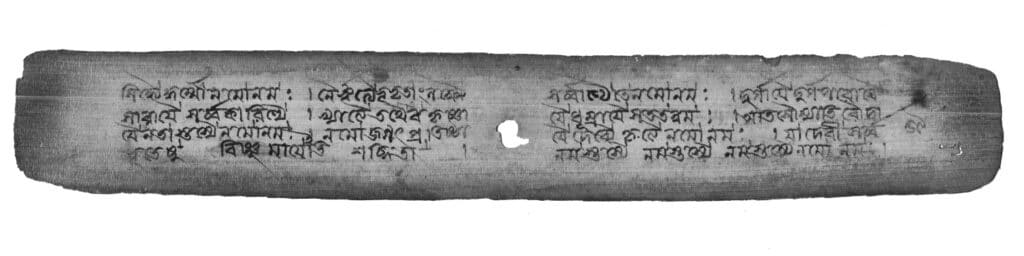 সিদ্ধ্যৈ কূর্ম্যৈ নমোনমঃ । নৈরৃত্যৈ ভূভৃতাং লক্ষ্ম্যৈ সর্ব্বাণ্যৈ তে নমোনমঃ । দুর্গায়ৈ দুর্গপারায়ৈ
সারায়ৈ সর্ব্বকারিণ্যৈ । খ্যাত্যৈ তথৈব কৃষ্ণায়ৈ ধূম্রায়ৈ সততং নমঃ । অতিসৌম্যাতিরৌদ্রা
য়ৈ নতাস্তস্যৈ নমোনমঃ । নমো জগৎপ্রতিষ্ঠায়ৈ দেব্যৈ কৃত্যৈ নমোনমঃ । যা দেবী সর্ব্ব
ভূতেষু বিষ্ণুমায়েতি শব্দিতা । নমস্তস্যৈ নমস্তস্যৈ নমস্তস্যৈ নমো নমঃ ।